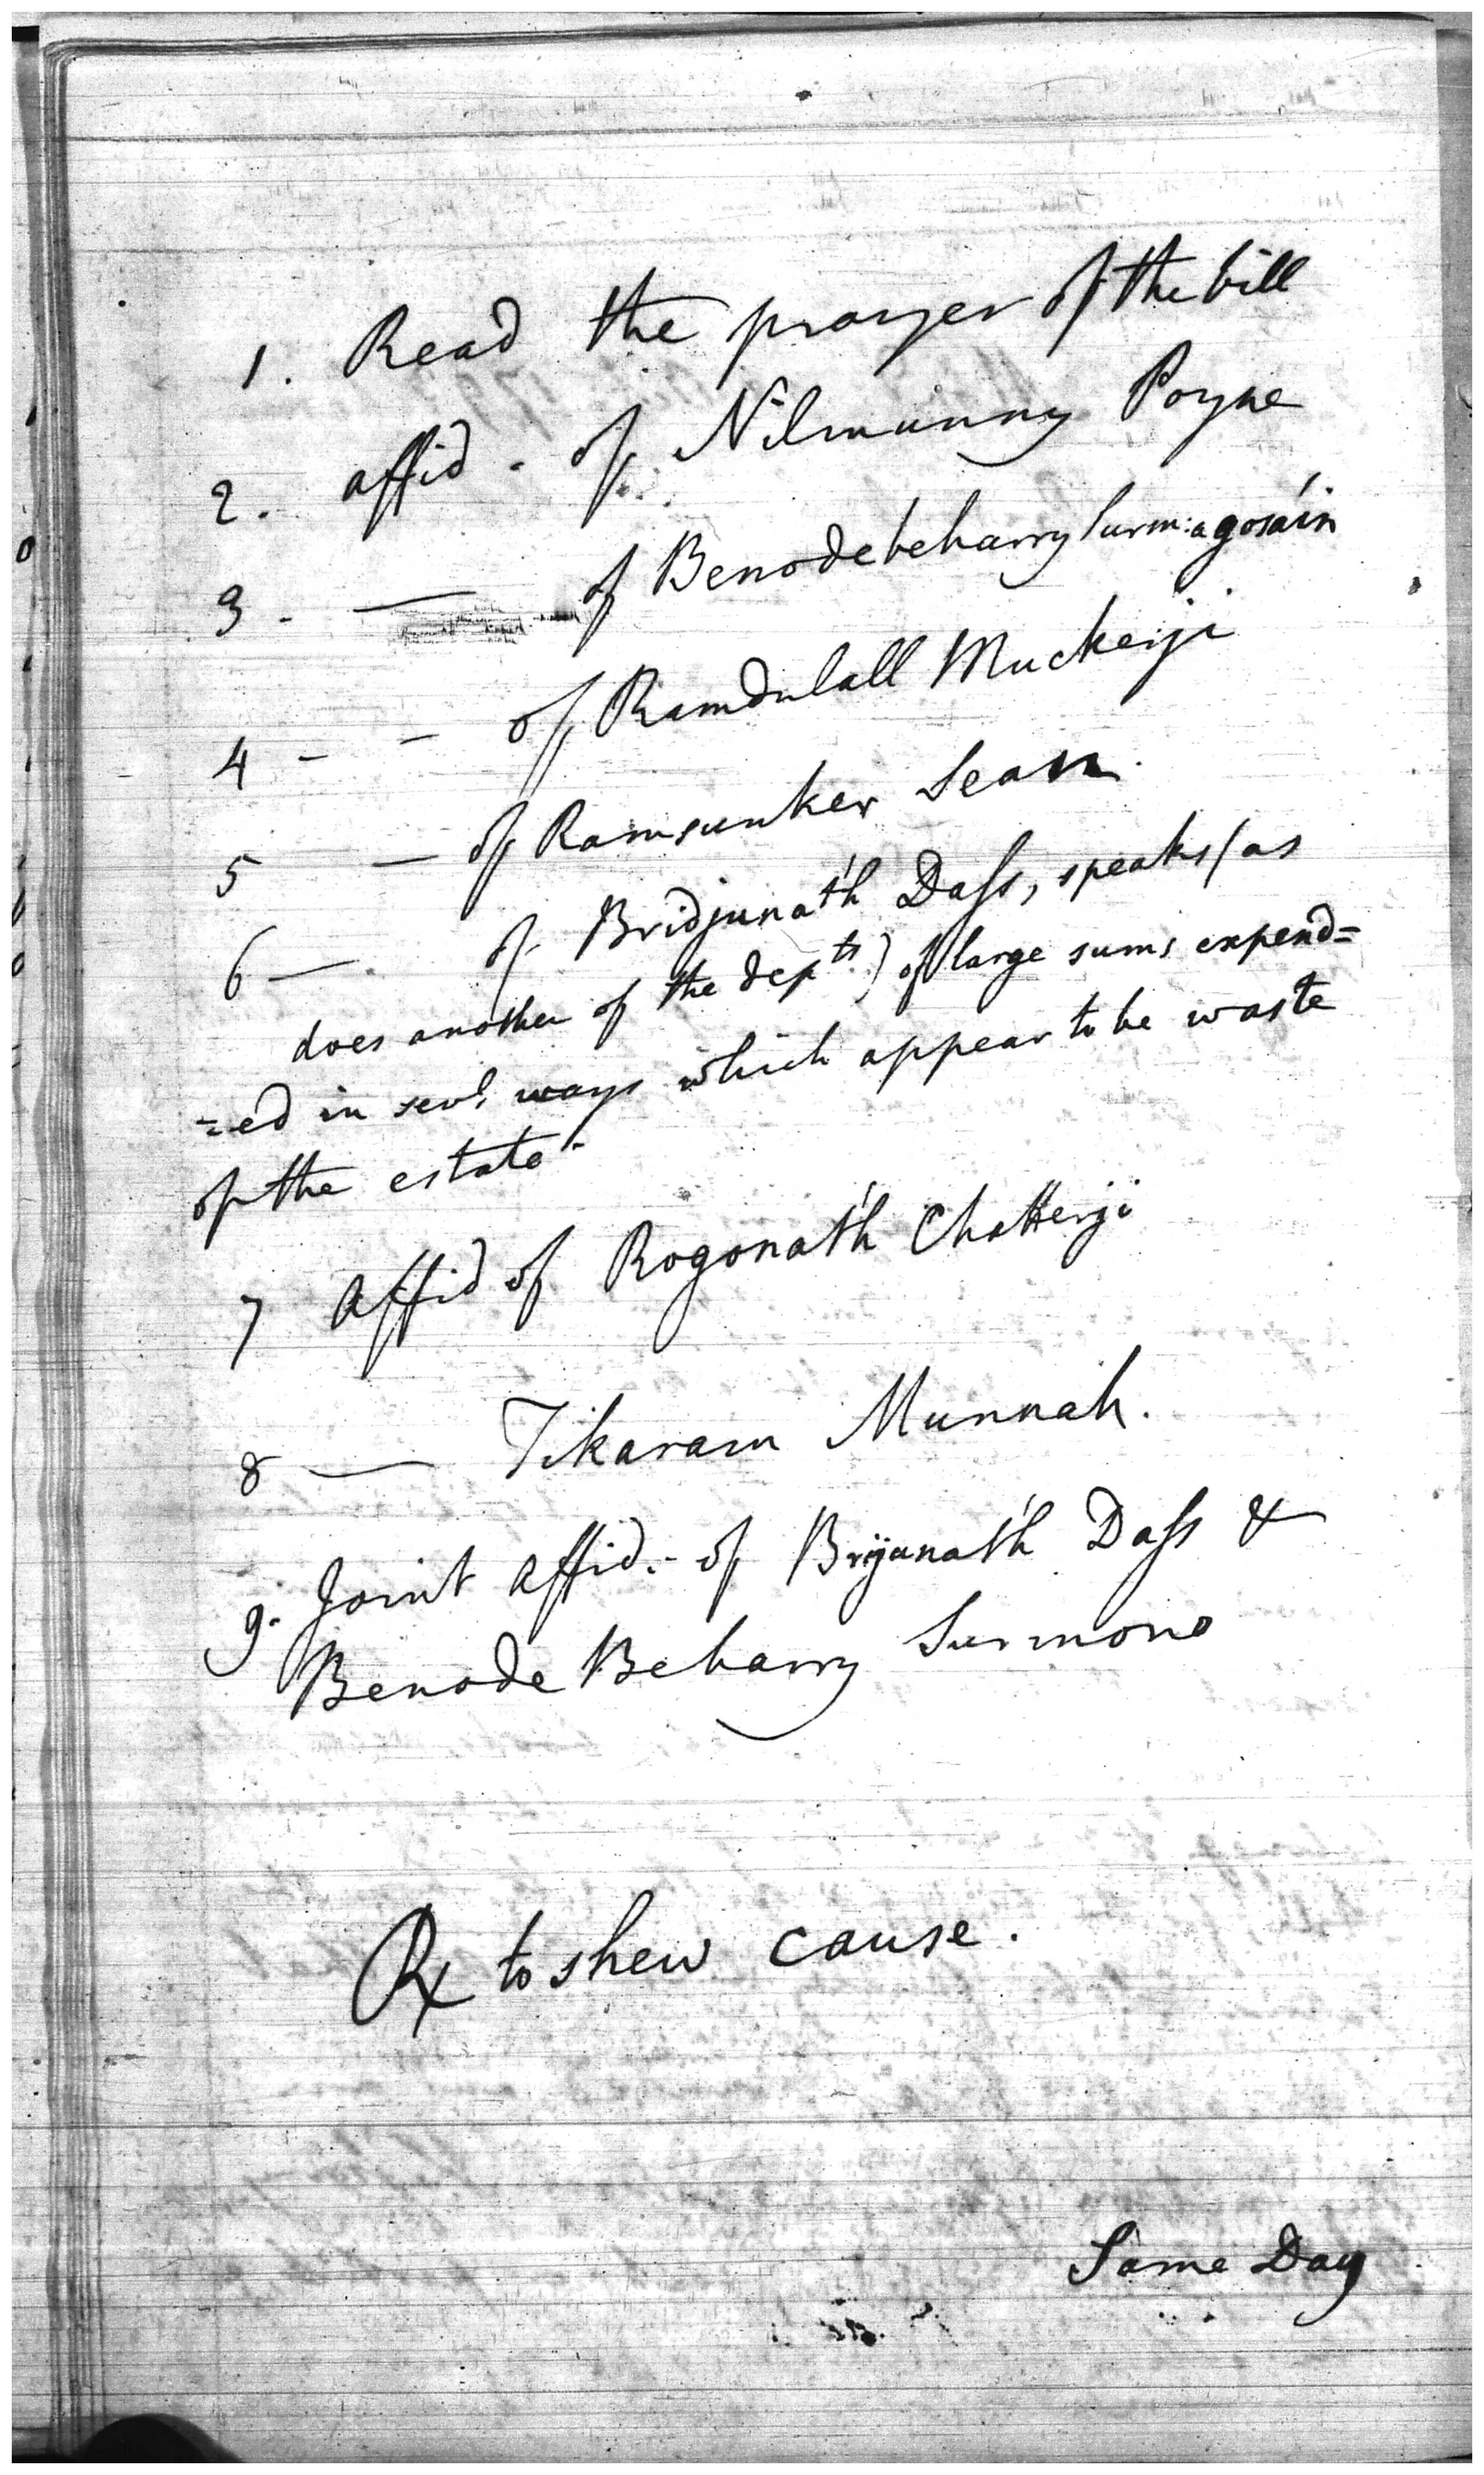 1. Read the prayer of the bill
2. affid - of Nilmunny Poyne
3 - — of Benodebeharry Surm:a gosáin
4 - - of Ramdulall Muckerji
5 — of Ramsunker Seam.
6 — of Bridjunáth Dass, speaks (as
does another of the depts) of large sums expend=
=ed in sevl. ways which appear to be waste
of the estate -
7 Affid of Rogonáth Chatterji
8 — Tikaram Munnah.
9. Joint Affid. - of Brijunáth Dass &
Benode Beharry Surmono
Rx to shew cause.
Same Day